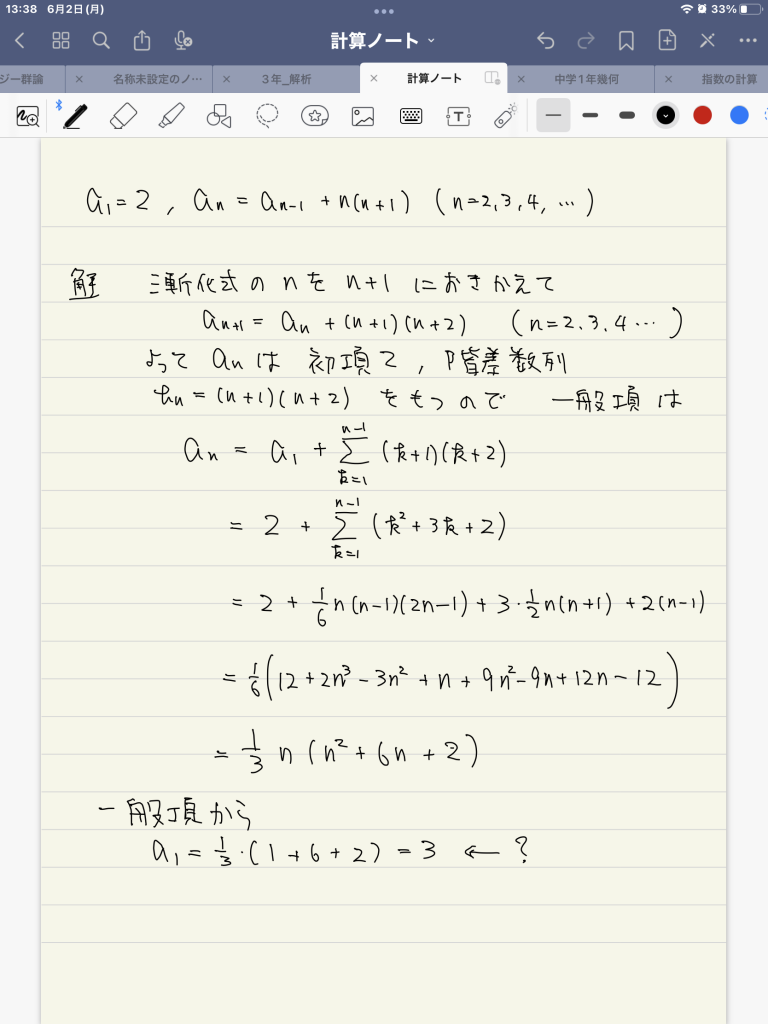 13:38 6月2日(月) 33%
計算ノート
ジー群論 × 名称未設定のノ… × 3年_解析 × 計算ノート × 中学1年幾何 × 指数の計算
a₁ = 2 , aₙ = aₙ₋₁ + n(n+1) (n=2,3,4, …)
解 漸化式の n を n+1 におきかえて
aₙ₊₁ = aₙ + (n+1)(n+2) (n=2.3.4…)
よって aₙ は 初項 2 , 階差数列
bₙ = (n+1)(n+2) をもつので 一般項は
aₙ = a₁ + Σ_{k=1}^{n-1} (k+1)(k+2)
= 2 + Σ_{k=1}^{n-1} (k² + 3k + 2)
= 2 + 1/6 n(n-1)(2n-1) + 3・1/2 n(n+1) + 2(n-1)
= 1/6 (12 + 2n³ - 3n² + n + 9n² - 9n + 12n - 12)
= 1/3 n (n² + 6n + 2)
一般項から
a₁ = 1/3・(1 + 6 + 2) = 3 ← ?